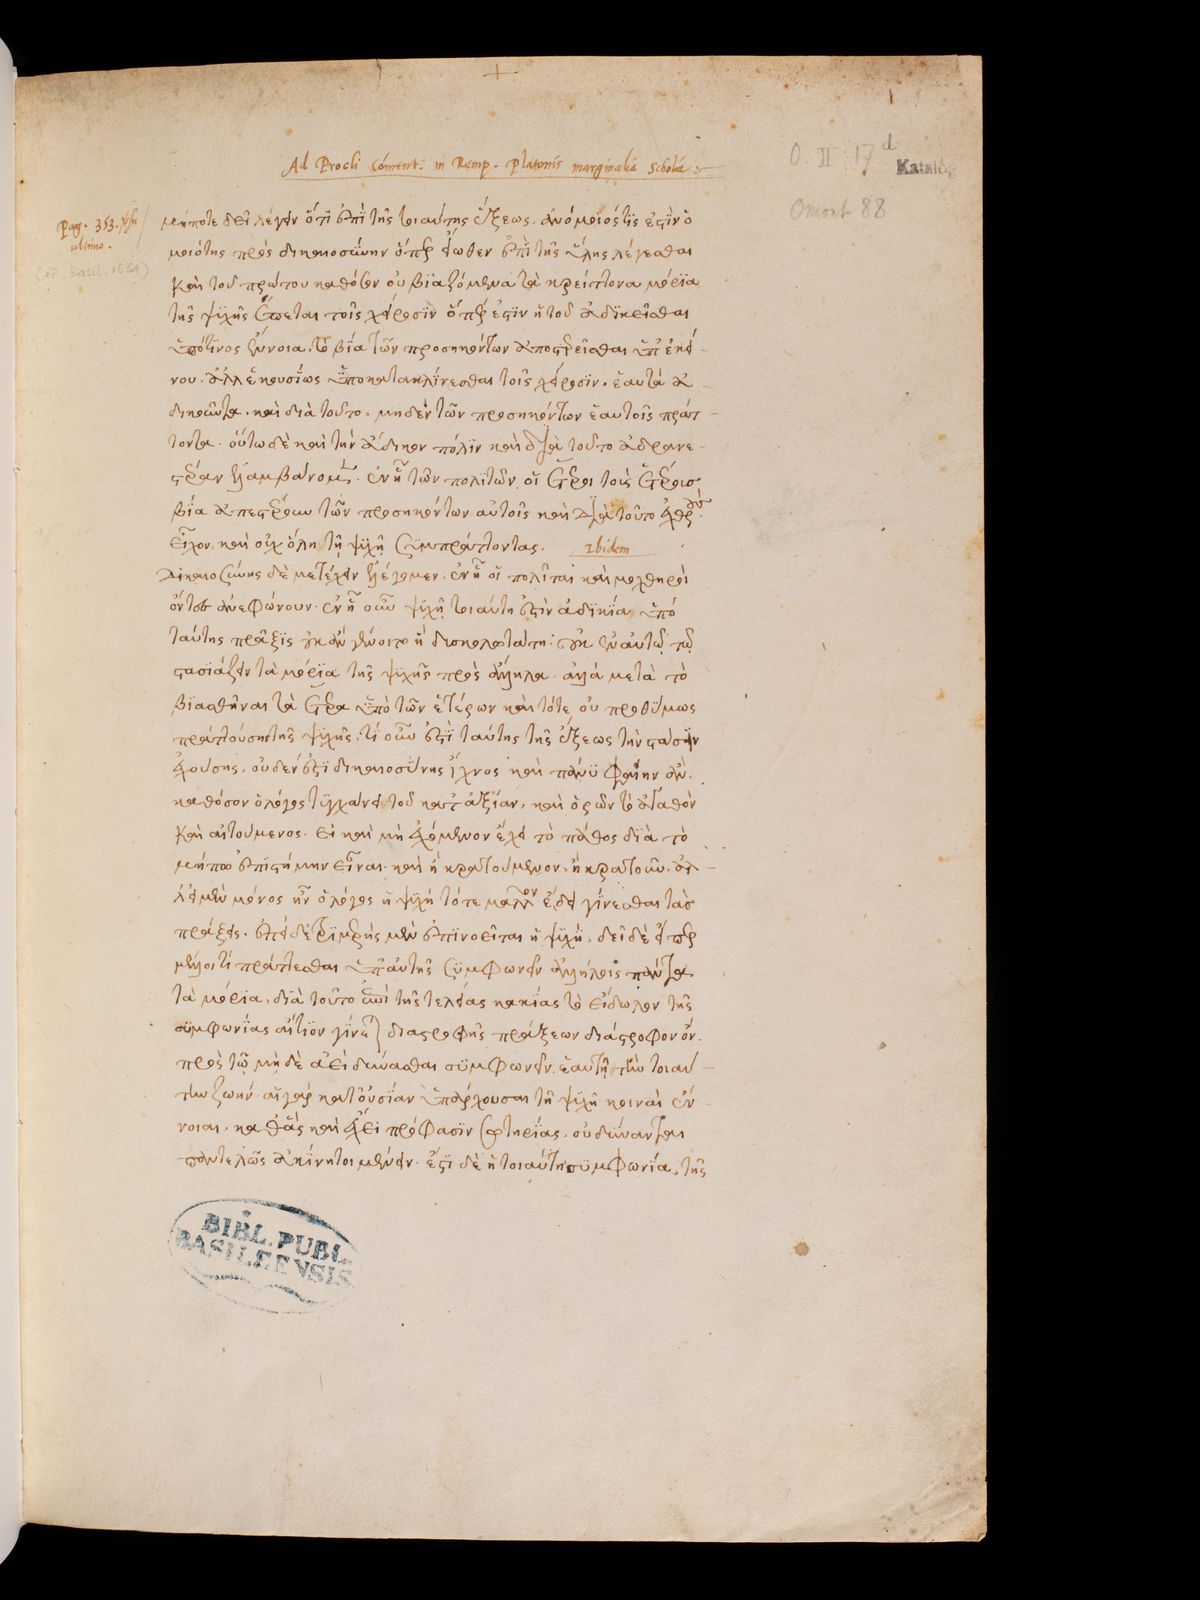 Ad Procli Coment. in Remp. Platonis marginalia Scholia
O. II 17 d
Katalog
Omont 88
Pag. 353.
ultimo.
(ed. Basil. 1534)
μήποτε δεῖ λέγειν ὅτι ἐπὶ τῆς τοιαύτης ἕξεως, ἀνόμοιός τις ἐστὶν ὁ
μοιότης πρὸς δικαιοσύνην ὅπερ εἴωθεν ἐπὶ τῆς ὕλης λέγεσθαι
καὶ τοῦ πρώτου καθόσον οὐ βιαζόμενα τὰ κρείττονα μόρια
τῆς ψυχῆς ἕπεται τοῖς χείροσιν ὅπερ ἐστὶν ἡ τοῦ ἀδικεῖσθαι
ὑπό τινος ἔννοια, τὸ βίᾳ τῶν προσηκόντων ἀποστερεῖσθαι ὑπ' ἐκεί-
νου. ἀλλ' ἑκουσίως ὑποκατακλίνεσθαι τοῖς χείροσιν. ἑαυτὰ ἀ-
δικοῦντα, καὶ διὰ τοῦτο, μηδὲν τῶν προσηκόντων ἑαυτοῖς πράτ-
τοντα. οὕτω δὲ καὶ τὴν ἄδικον πόλιν καὶ διὰ τοῦτο ἀδρανε-
στέραν λαμβάνομεν. ἐν ᾗ τῶν πολιτῶν οἱ ἕτεροι τοὺς ἑτέρους
βίᾳ ἀπεστέρουν τῶν προσηκόντων αὐτοῖς καὶ διὰ τοῦτο
εἶχον καὶ οὐχ ὅλῃ τῇ ψυχῇ συμπράττοντας. ibidem
δικαιοσύνης δὲ μετέχειν ἐλέγομεν. ἐν ᾗ οἱ πολῖται καὶ μοχθηροὶ
ὄντες ἐν ᾗ οὖν ψυχῇ τοιαύτη ἐστὶν ἀδικία ὑπὸ
ταύτης πρᾶξις οὐκ ἂν γένοιτο ἢ δυσκολωτάτη. οὐκ ἐν αὐτῷ τῷ
στασιάζειν τὰ μόρια τῆς ψυχῆς πρὸς ἄλληλα. ἀλλὰ μετὰ τὸ
βιασθῆναι τὰ ἕτερα ὑπὸ τῶν ἑτέρων καὶ τότε οὐ προθύμως
πραττούσης τῆς ψυχῆς. τί οὖν ἐστὶ ταύτης τῆς ἕξεως τὴν στάσιν
ἐχούσης, οὐδέν ἐστι δικαιοσύνης ἴχνος καὶ πάνυ φαίην ἄν.
καθόσον ὁ λόγος τυγχάνει τοῦ κατ' ἀξίαν, καὶ ὁρῶν τὸ ἀγαθὸν
καὶ αἰτούμενος. εἰ καὶ μὴ ἑπόμενον ἔχει τὸ πάθος διὰ τὸ
μήπω ἐπιστήμην εἶναι. καὶ ἢ κρατούμενον, ἢ κρατοῦν. ἀλ-
λ' εἰ μὲν μόνος ἦν ὁ λόγος ἡ ψυχὴ τότε μᾶλλον ἔδει γίνεσθαι τὰς
πράξεις. ἐπεὶ δὲ τριμερὴς μὲν ἐπινοεῖται ἡ ψυχή, δεῖ δὲ εἴπερ
μέλλοι τι πράττεσθαι ὑπ' αὐτῆς συμφωνεῖν ἀλλήλοις πάντα
τὰ μόρια, διὰ τοῦτο ἐπὶ τῆς τελείας κακίας τὸ εἴδωλον τῆς
συμφωνίας αἴτιον γίνεται διαστροφῆς πράξεων διάστροφον ὄν.
πρὸς τῷ μηδὲ ἀεὶ δύνασθαι συμφωνεῖν ἑαυτῇ τὴν τοιαύ-
την ζωήν. αἱ γὰρ κατ' οὐσίαν ὑπάρχουσαι τῇ ψυχῇ κοιναὶ ἔν-
νοιαι, καθ' ἃς καὶ ἔχει πρόφασιν σωτηρίας, οὐ δύνανται
παντελῶς ἀκίνητοι μένειν. ἔστι δὲ ἡ τοιαύτη συμφωνία, τῆς
BIBL. PUBL.
BASILEENSIS